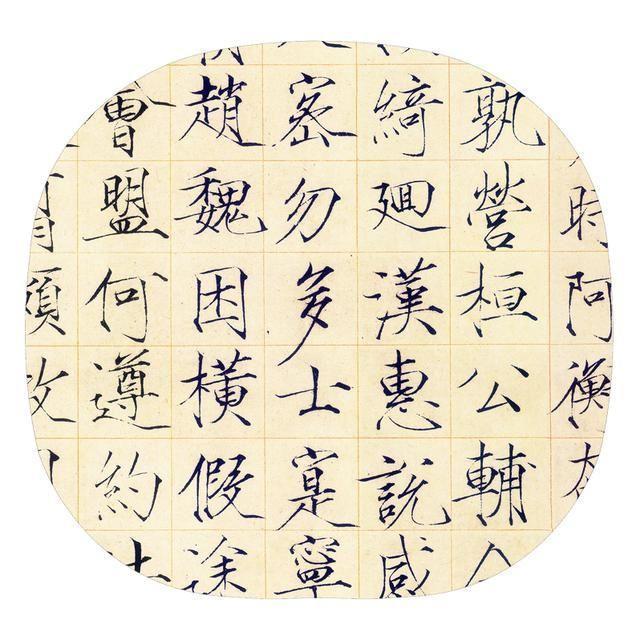 時阿衡
孰營桓公輔
綺廻漢惠說感
密勿多士寔寧
趙魏困橫假途
會盟何遵約